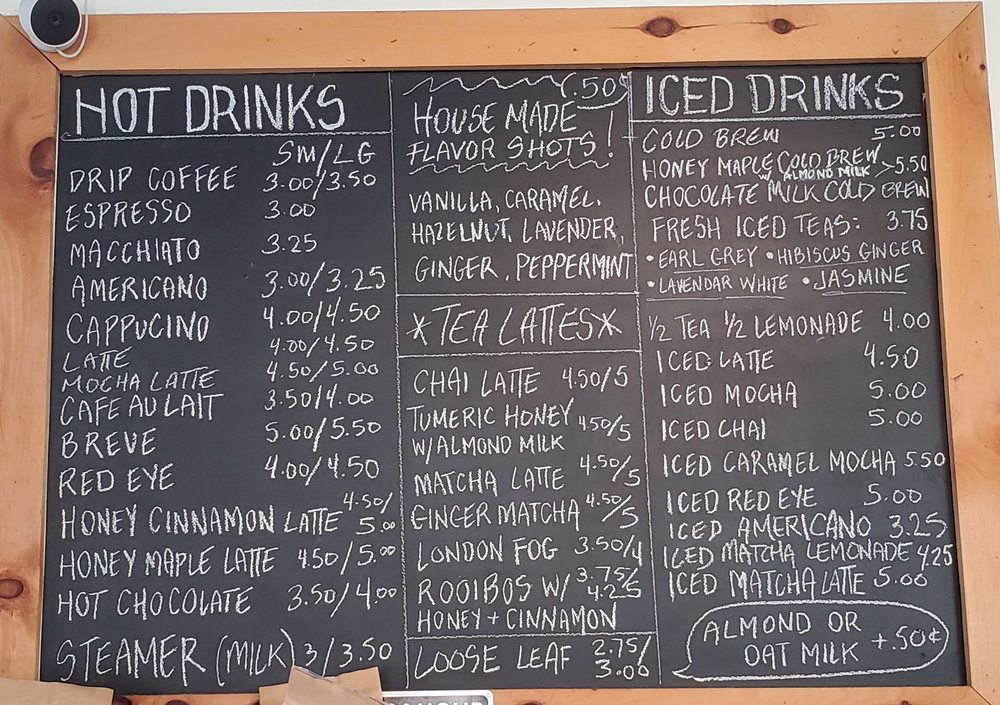 HOT DRINKS
SM/LG
DRIP COFFEE 3.00/3.50
ESPRESSO 3.00
MACCHIATO 3.25
AMERICANO 3.00/3.25
CAPPUCINO 4.00/4.50
LATTE 4.00/4.50
MOCHA LATTE 4.50/5.00
CAFE AU LAIT 3.50/4.00
BREVE 5.00/5.50
RED EYE 4.00/4.50
HONEY CINNAMON LATTE 4.50/5.00
HONEY MAPLE LATTE 4.50/5.00
HOT CHOCOLATE 3.50/4.00
STEAMER (MILK) 3/3.50
(.50¢)
HOUSE MADE
FLAVOR SHOTS!
VANILLA, CARAMEL,
HAZELNUT, LAVENDER,
GINGER, PEPPERMINT
*TEA LATTES*
CHAI LATTE 4.50/5
TUMERIC HONEY 450/5
W/ALMOND MILK
MATCHA LATTE 4.50/5
GINGER MATCHA 4.50/5
LONDON FOG 3.50/4
ROOIBOS W/ 3.75/4.25
HONEY + CINNAMON
LOOSE LEAF 2.75/3.00
ICED DRINKS
COLD BREW 5.00
HONEY MAPLE COLD BREW
W/ ALMOND MILK >5.50
CHOCOLATE MILK COLD BREW
FRESH ICED TEAS: 3.75
• EARL GREY • HIBISCUS GINGER
• LAVENDAR WHITE • JASMINE
1/2 TEA 1/2 LEMONADE 4.00
ICED LATTE 4.50
ICED MOCHA 5.00
ICED CHAI 5.00
ICED CARAMEL MOCHA 5.50
ICED RED EYE 5.00
ICED AMERICANO 3.25
ICED MATCHA LEMONADE 4.25
ICED MATCHA LATTE 5.00
ALMOND OR
OAT MILK +.50¢